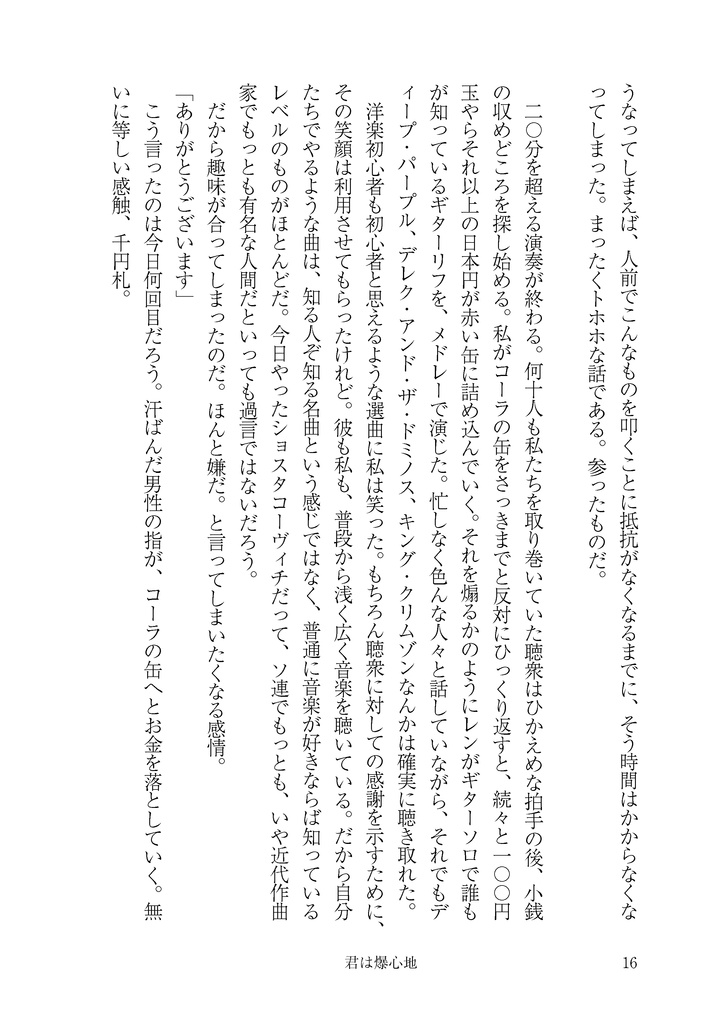 うなってしまえば、人前でこんなものを叩くことに抵抗がなくなるまでに、そう時間はかからなくな
ってしまった。まったくトホホな話である。参ったものだ。
二〇分を超える演奏が終わる。何十人も私たちを取り巻いていた聴衆はひかえめな拍手の後、小銭
の収めどころを探し始める。私がコーラの缶をさっきまでと反対にひっくり返すと、続々と一〇〇円
玉やらそれ以上の日本円が赤い缶に詰め込んでいく。それを煽るかのようにレンがギターソロで誰も
が知っているギターリフを、メドレーで演じた。忙しなく色んな人々と話していながら、それでもデ
ィープ・パープル、デレク・アンド・ザ・ドミノス、キング・クリムゾンなんかは確実に聴き取れた。
洋楽初心者も初心者と思えるような選曲に私は笑った。もちろん聴衆に対しての感謝を示すために、
その笑顔は利用させてもらったけれど。彼も私も、普段から浅く広く音楽を聴いている。だから自分
たちでやるような曲は、知る人ぞ知る名曲という感じではなく、普通に音楽が好きならば知っている
レベルのものがほとんどだ。今日やったショスタコーヴィチだって、ソ連でもっとも、いや近代作曲
家でもっとも有名な人間だといっても過言ではないだろう。
だから趣味が合ってしまったのだ。ほんと嫌だ。と言ってしまいたくなる感情。
「ありがとうございます」
こう言ったのは今日何回目だろう。汗ばんだ男性の指が、コーラの缶へとお金を落としていく。無
いに等しい感触、千円札。
君は爆心地
16